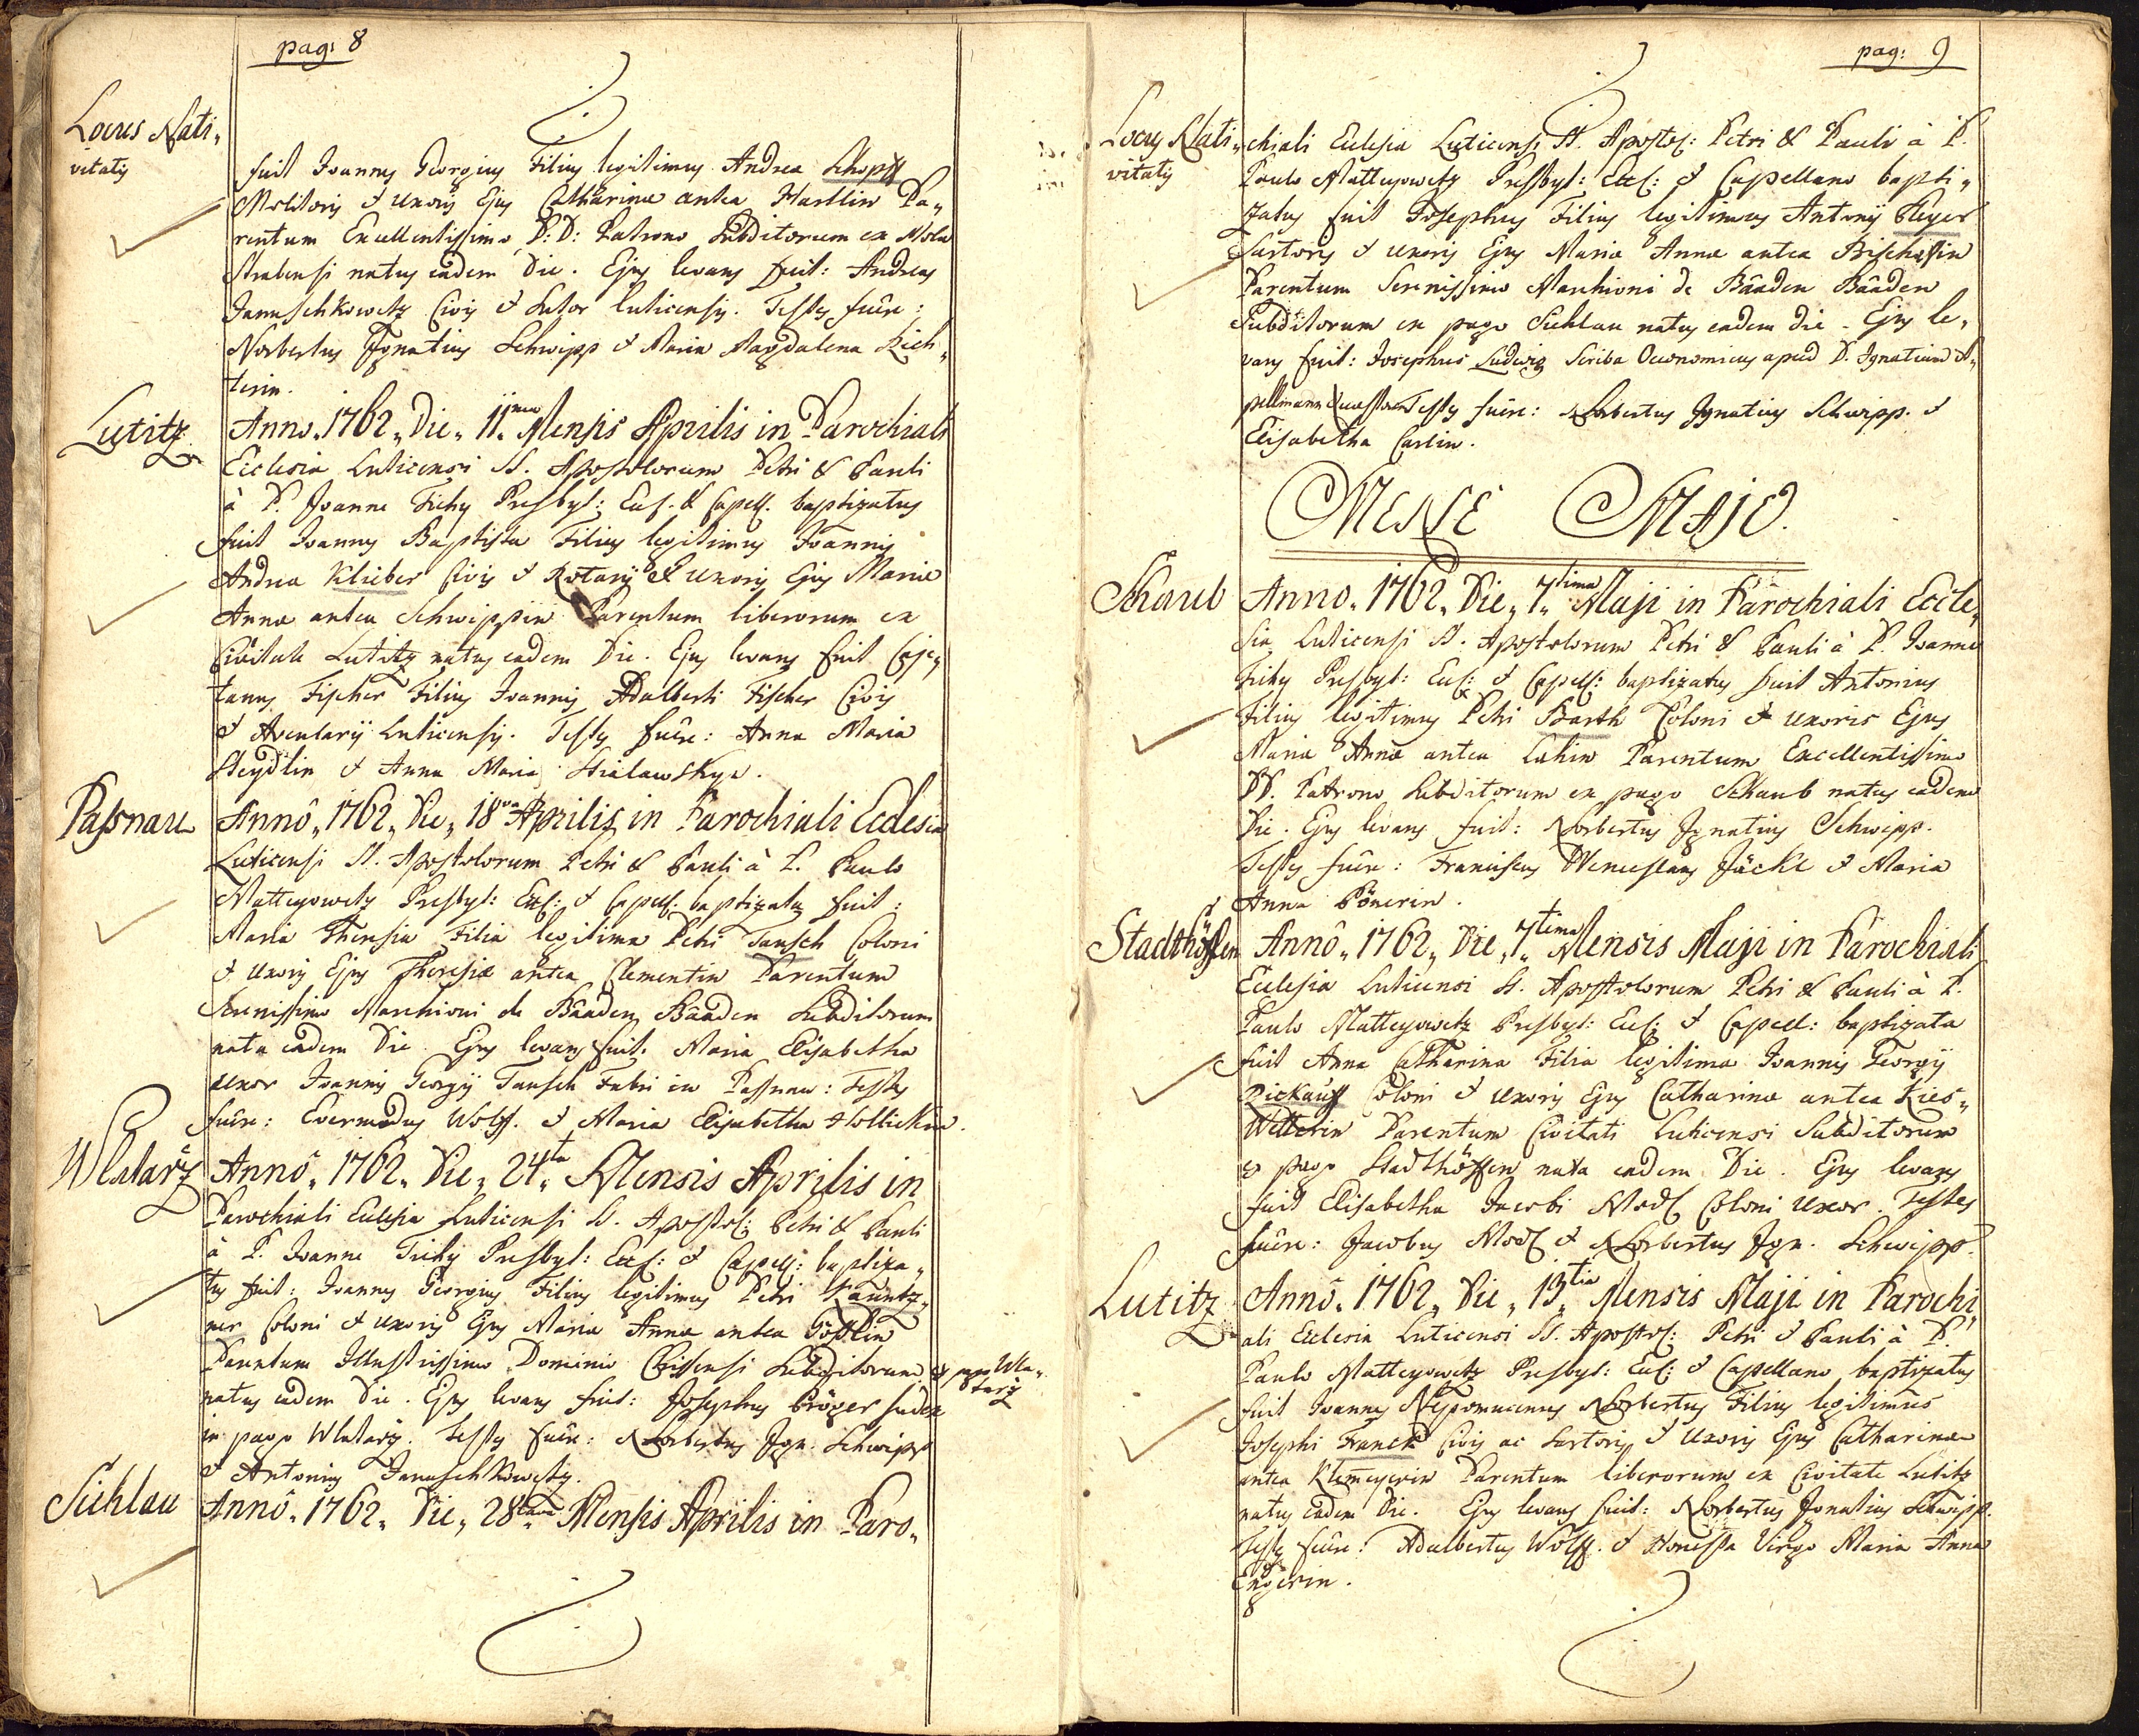 pag: 8
Locus Nati„
vitatis
fuit Joannes Georgius Filius legitimus Andreæ Schopff
Molitoris & uxoris Ejus Catharinæ antea Hartlin Pa„
rentum Excellentissimo D: D: Patrono Subditorum ex Mola
Strabensi natus eadem Die. Ejus levans fuit: Andreas
Januschkowetz Civis & Sutor Luticensis. Testes fuêre:
Norbertus Ignatius Schwipp & Maria Magdalena Rich„
terin.
Lutitz
Anno„ 1762„ Die„ 11„ma Mensis Aprilis in Parochiali
Ecclesia Luticensi SS. Apostolorum Petri & Pauli
à P. Joanne Tichy Presbyt: Ecl. & Capell. baptizatus
fuit Joannes Baptista Filius legitimus Joannis
Andreæ Klieber Civis & Rotarij & uxoris Ejus Mariæ
Annæ antea Schwippin Parentum liberorum ex
Civitate Lutitz natus eadem Die. Ejus levans fuit Caje„
tanus Fischer Filius Joannis Adalberti Fischer Civis
& Acularij Luticensis. Testes fuêre: Anna Maria
Steydlin & Anna Maria
Passnau
Annô„ 1762„ Die„ 18va Aprilis in Parochiali Ecclesia
Luticensi SS. Apostolorum Petri & Pauli à P. Paulo
Matteyowetz Presbyt: Ecl: & Capell: baptizata fuit:
Maria Theresia Filia legitima Petri Tausch Coloni
& uxoris Ejus Theresiæ antea Clementin Parentum
Serenissimo Marchioni de Bâaden Bâaden Subditorum
nata eadem Die. Ejus levans fuit: Maria Elisabetha
uxor Joannis Georgij Tausch Fabri in Passnau: Testes
fuêre: Evermodus Wolff. & Maria Elisabetha
Wlatarž
Annô„ 1762„ Die„ 24„ta Mensis Aprilis in
Parochiali Ecclesia Luticensi SS. Apostol: Petri & Pauli
à P. Joanne Tichÿ Presbyt: Ecl: & Capell: baptiza„
tus fuit: Joannes Georgius Filius legitimus Petri Kauntz„
ner Coloni & uxoris Ejus Mariæ Annæ antea Gösslin
Parentum Illustrissimo Dominio Chissensi Subditorum ex pago Wla„
tarz
natus eadem Die. Ejus levans fuit: Josephus Pröger Judex
in pago Wlatarž. Testes fuêre: Norbertus Ign. Schwipp
& Antonius Januschkowetz.
Sichlau
Annô„ 1762„ Die„ 28„tava Mensis Aprilis in Paro„
pag: 9
Locus Nati„
vitatis
chiali Ecclesia Luticensi SS. Apostol: Petri & Pauli à P.
Paulo Matteyowetz Presbyt: Eccl: & Capellano bapti„
zatus fuit Josephus Filius legitimus Antonij Heyer
Sartoris & uxoris Ejus Mariæ Annæ antea Bischoffin
Parentum Serenissimo Marchioni de Bâaden Bâaden
Subditorum ex pago Sichlau natus eadem die. Ejus le„
vans fuit: Josephus Ludwig Scriba Oeconomicus apud D. Ignatium A„
pellmann Quæstorem Testes fuêre: Norbertus Ignatius Schwipp. &
Elisabetha Carlin.
MENSE MAJO.
Schaub
Anno„ 1762„ Die„ 7„tima Maji in Parochiali Eccle„
sia Luticensi SS. Apostolorum Petri & Pauli à P. Joanne
Tichy Presbyt: Ecl: & Capell: baptizatus fuit Antonius
Filius legitimus Petri Barth Coloni & uxoris Ejus
Mariæ Annæ antea Lahin Parentum Excellentissimo
DD. Patrono Subditorum ex pago Schaub natus eadem
Die. Ejus levans fuit: Norbertus Ignatius Schwipp.
Testes fuêre: Franciscus Wenceslaus Jäckl & Maria
Anna Pönerin.
Stadthöffen
Annô„ 1762„ Die„ 7„tima Mensis Maji in Parochiali
Ecclesia Luticensi SS. Apostolorum Petri & Pauli à P.
Paulo Matteyowetz Presbyt: Ecl: & Capell: baptizata
fuit Anna Catharina Filia legitima Joannis Georgij
Dickauff Coloni & uxoris Ejus Catharinæ antea Kies„
Wetterin Parentum Civitati Luticensi Subditorum
ex pago Stadthöffen nata eadem Die. Ejus levans
fuit Elisabetha Jacobi Modl Coloni uxor. Testes
fuêre: Jacobus Modl & Norbertus Ign. Schwipp.
Lutitz
Annô„ 1762„ Die„ 13„tia Mensis Maji in Parochi„
ali Ecclesia Luticensi SS. Apostol: Petri & Pauli à P.
Paulo Matteyowetz Presbyt: Ecl: & Capellano baptizatus
fuit Joannes Nepomucenus Norbertus Filius legitimus
Josephi Franck Civis ac Sartoris & Uxoris Ejus Catharinæ
antea Klemeyerin Parentum liberorum ex Civitate Lutitz
natus eadem Die. Ejus levans fuit: Norbertus Ignatius Schwipp.
Testes fuêre: Adalbertus Wolff. & Honesta Virgo Maria Anna
Engerin.